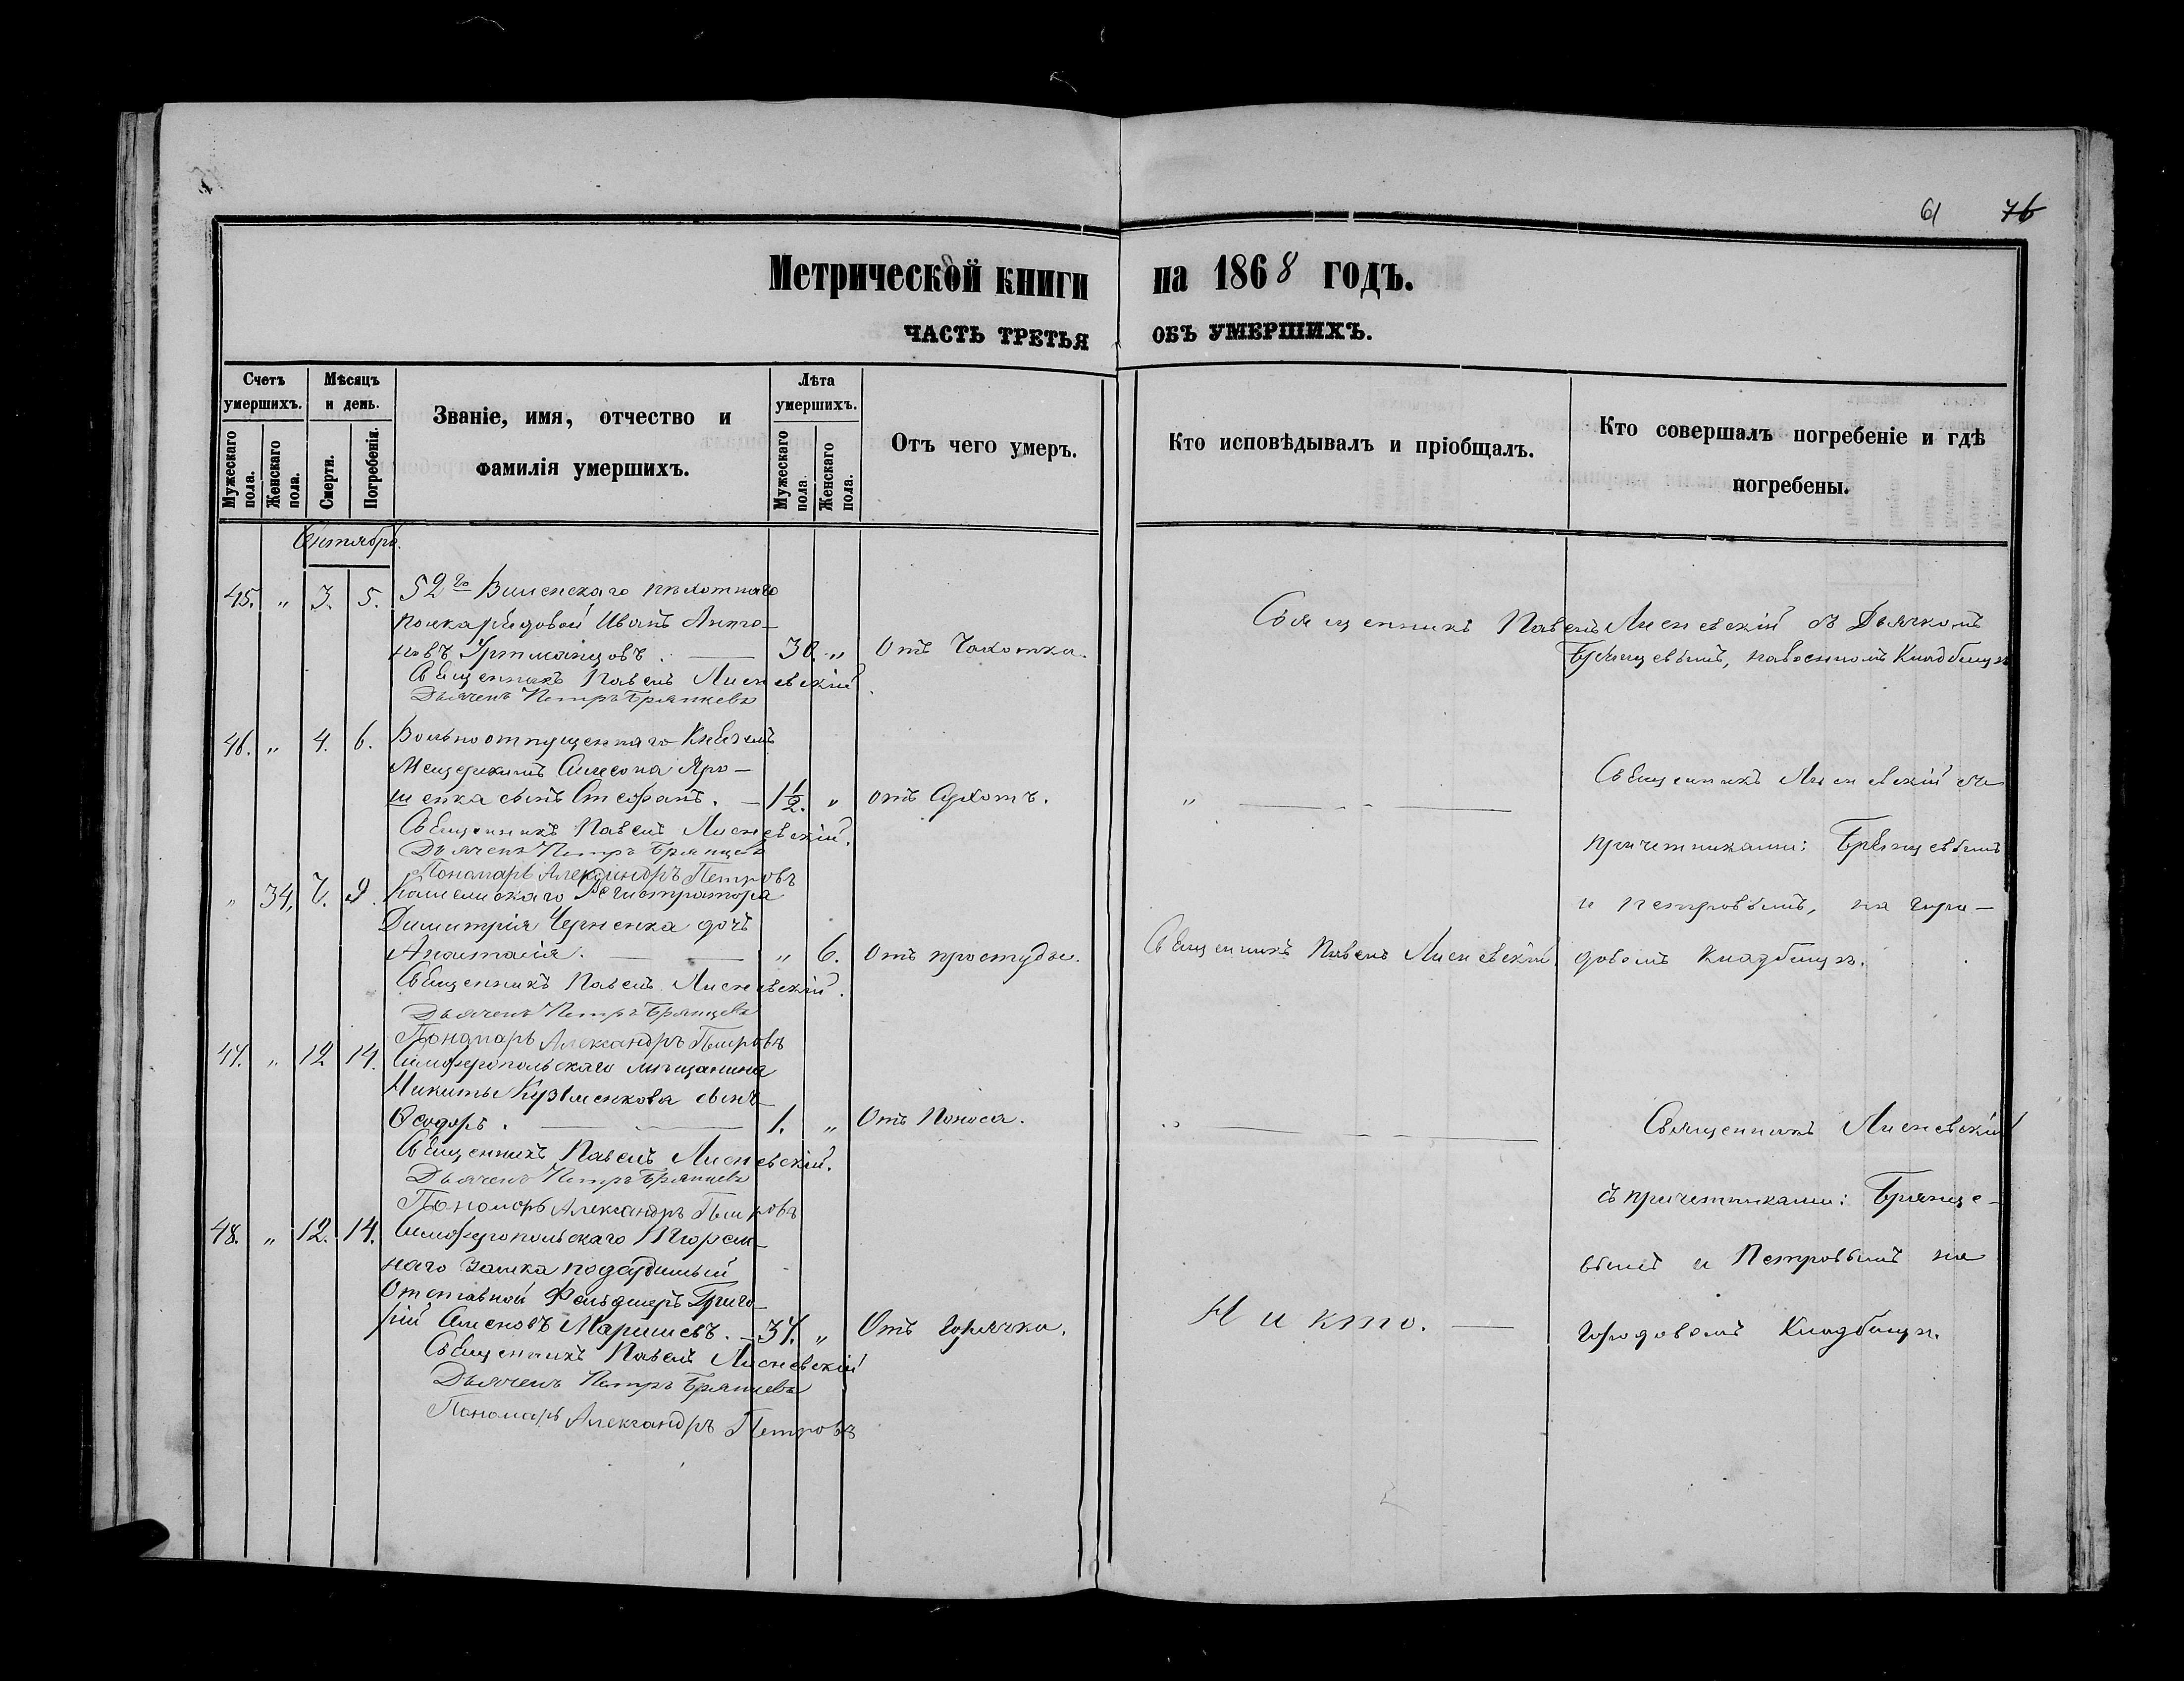 61 76
Метрической книги на 1868 годъ.
ЧАСТЬ ТРЕТЬЯ ОБЪ УМЕРШИХЪ.
Счетъ умершихъ.
Мужескаго пола.
Женскаго пола.
Мѣсяцъ и день.
Смерти.
Погребенія.
Званіе, имя, отчество и
фамилія умершихъ.
Лѣта умершихъ.
Мужескаго пола.
Женскаго пола.
Отъ чего умеръ.
Кто исповѣдывалъ и пріобщалъ.
Кто совершалъ погребеніе и гдѣ
погребены.
Октябрь.
45. " 3. 5. 52го Виленскаго пѣхотнаго
полка рядовой Иванъ Анто-
новъ 30. " Отъ Чахотки.
Священникъ Павелъ Лисневскій
Дьячекъ Петръ Брянцевъ
Священникъ Павелъ Лисневскій съ Дьячкомъ
Брянцевымъ, на военномъ Кладбищѣ
46. " 4. 6. Вольноотпущеннаго Княземъ
Мещерскимъ Симеона Яро-
шенка сынъ Стефанъ. 1½. " отъ Сухотъ. "
Священникъ Павелъ Лисневскій.
Дьячекъ Петръ Брянцевъ
Пономарь Александръ Петровъ
Священникъ Лисневскій съ
причетниками: Брянцевымъ
и Петровымъ, на горо-
довомъ Кладбищѣ.
" 34. 7. 9. Колежскаго Регистратора
Димитрія Черненка дочь
Анастасія. " 6. Отъ простуды. Священникъ Павелъ Лисневскій.
Священникъ Павелъ Лисневскій.
Дьячекъ Петръ Брянцевъ
Пономарь Александръ Петровъ
47. " 12 14. Симферопольскаго мѣщанина
Никиты Кузменкова сынъ
Ѳеодоръ. 1. " Отъ Поноса. "
Священникъ Павелъ Лисневскій.
Дьячекъ Петръ Брянцевъ
Пономарь Александръ Петровъ
Священникъ Лисневскій
съ причетниками: Брянце-
вымъ и Петровымъ на
городовомъ Кладбищѣ.
48. " 12. 14. Симферопольскаго Тюрем-
наго замка подсудимый
Отставной Фельдшеръ Григо-
рій Сименовъ 37. " Отъ горячки. Никто.
Священникъ Павелъ Лисневскій
Дьячекъ Петръ Брянцевъ
Пономарь Александръ Петровъ